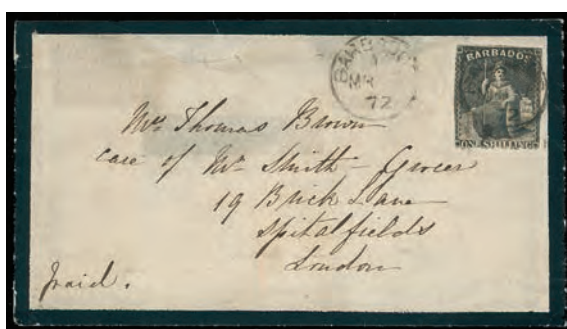 BARBADOS
MR
72
BARBADOS
ONE SHILLING
Mrs Thomas Brown
care of Mr Smith - Grocer
19 Brick Lane
Spitalfields
London
paid.